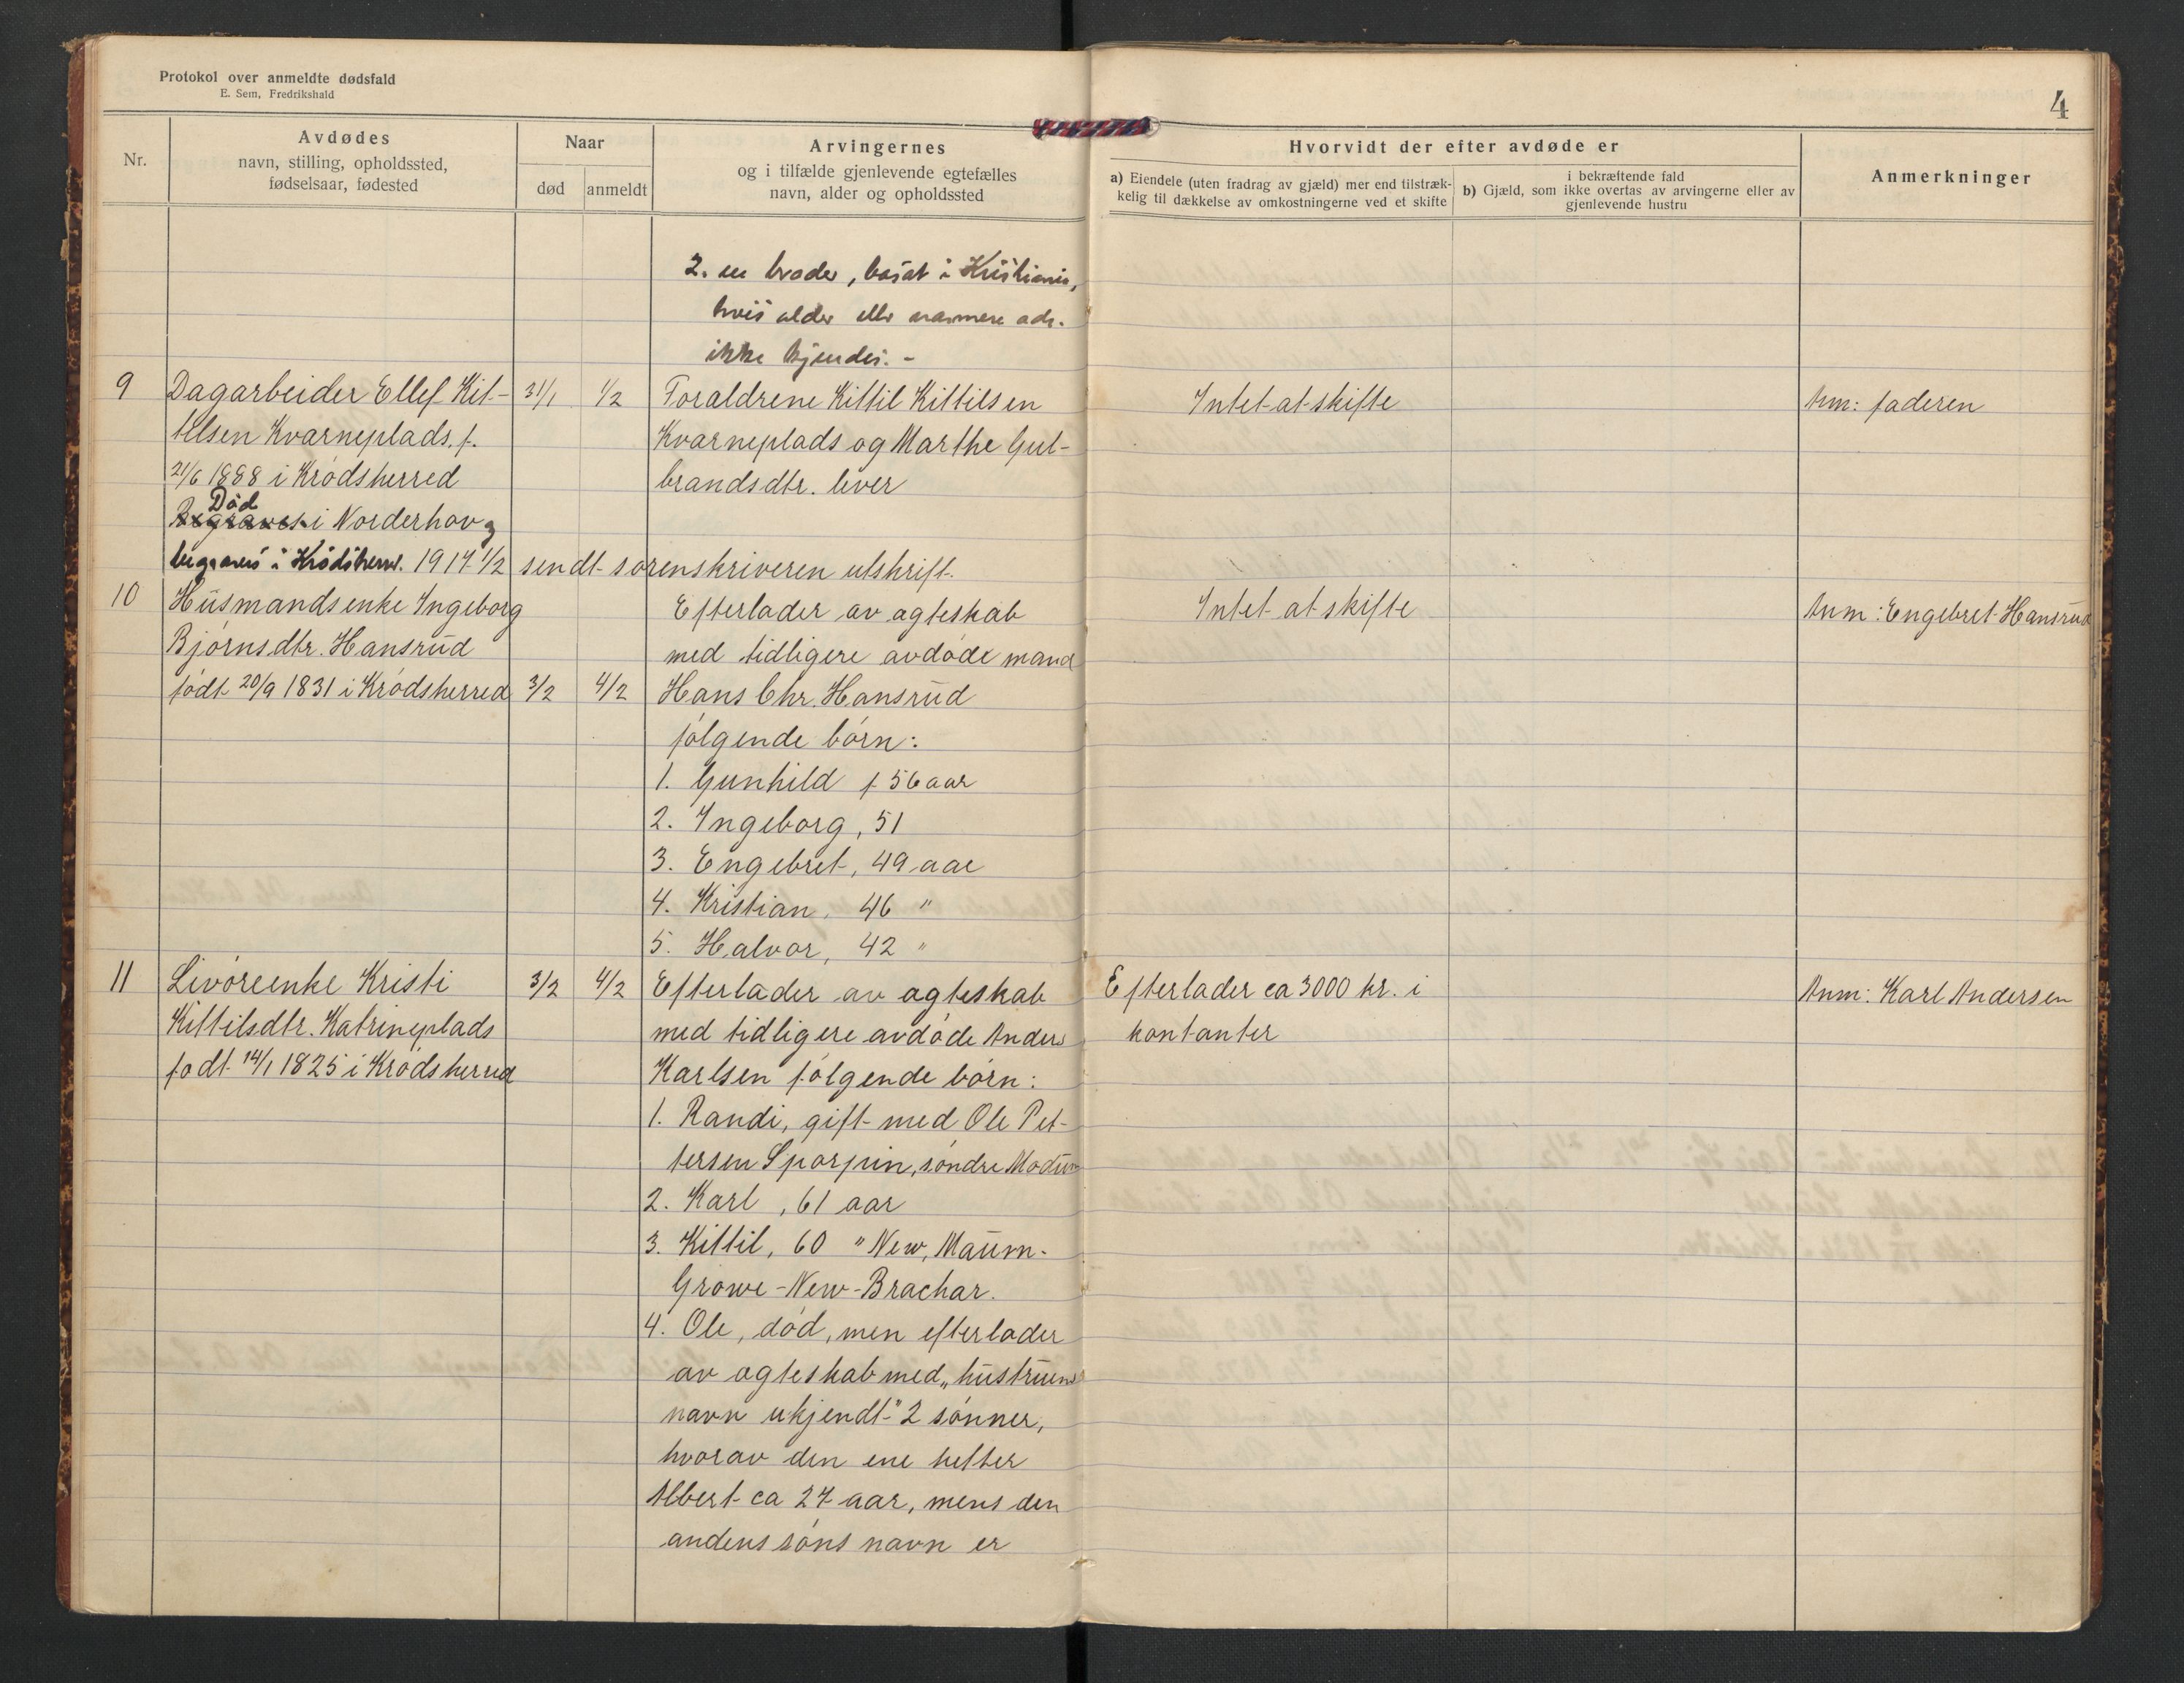 Protokol over anmeldte dødsfald
E. Sem, Fredrikshald
4
Nr.
Avdødes
navn, stilling, opholdssted,
fødselsaar, fødested
Naar
død
anmeldt
Arvingernes
og i tilfælde gjenlevende egtefælles
navn, alder og opholdssted
Hvorvidt der efter avdøde er
a) Eiendele (uten fradrag av gjæld) mer end tilstræk-
kelig til dækkelse av omkostningerne ved et skifte
i bekræftende fald
b) Gjæld, som ikke overtas av arvingerne eller av
gjenlevende hustru
Anmerkninger
2. en broder, bosat i Kristiania,
hvis alder eller nærmere adr.
ikke kjendes. -
9 Dagarbeider Ellef Kit- 31/1 1/2 Foraldrene Kittil Kittilsen Intet at skifte Anm: faderen
telsen Kvarneplads, f. Kvarneplads og Marthe Gul-
21/6 1888 i Krødsherred brandsdtr. lever
Død
Begraves i Norderhov,
begraves i Krødsherr. 1917 1/2 sendt sorenskriveren utskrift.
10 Husmandsenke Ingeborg Efterlader av ægteskab Intet at skifte Anm: Engebret Hansrud
Bjørnsdtr. Hansrud med tidligere avdøde mand
født 20/9 1831 i Krødsherred 3/2 4/2 Hans Chr. Hansrud
følgende børn:
1. Gunhild f 56 aar
2. Ingeborg, 51
3. Engebret, 49 aar
4. Kristian, 46 "
5. Halvor, 42 "
11 Livøreenke Kristi 3/2 4/2 Efterlader av ægteskab Efterlader ca 3000 kr. i Anm: Karl Andersen
Kittilsdtr. Katrineplads med tidligere avdøde Anders kontanter
født 14/1 1825 i Krødsherred Karlsen følgende børn:
1. Randi, gift med Ole Pet-
tersen Sporpin, søndre Modum
2. Karl, 61 aar
3. Kittil, 60 " New, Maum-
Growe-New-Brachar.
4. Ole, død, men efterlader
av ægteskab med „hustruens
navn ukjendt" 2 sønner,
hvorav den ene hetter
Albert ca 27 aar, mens den
andens søns navn er